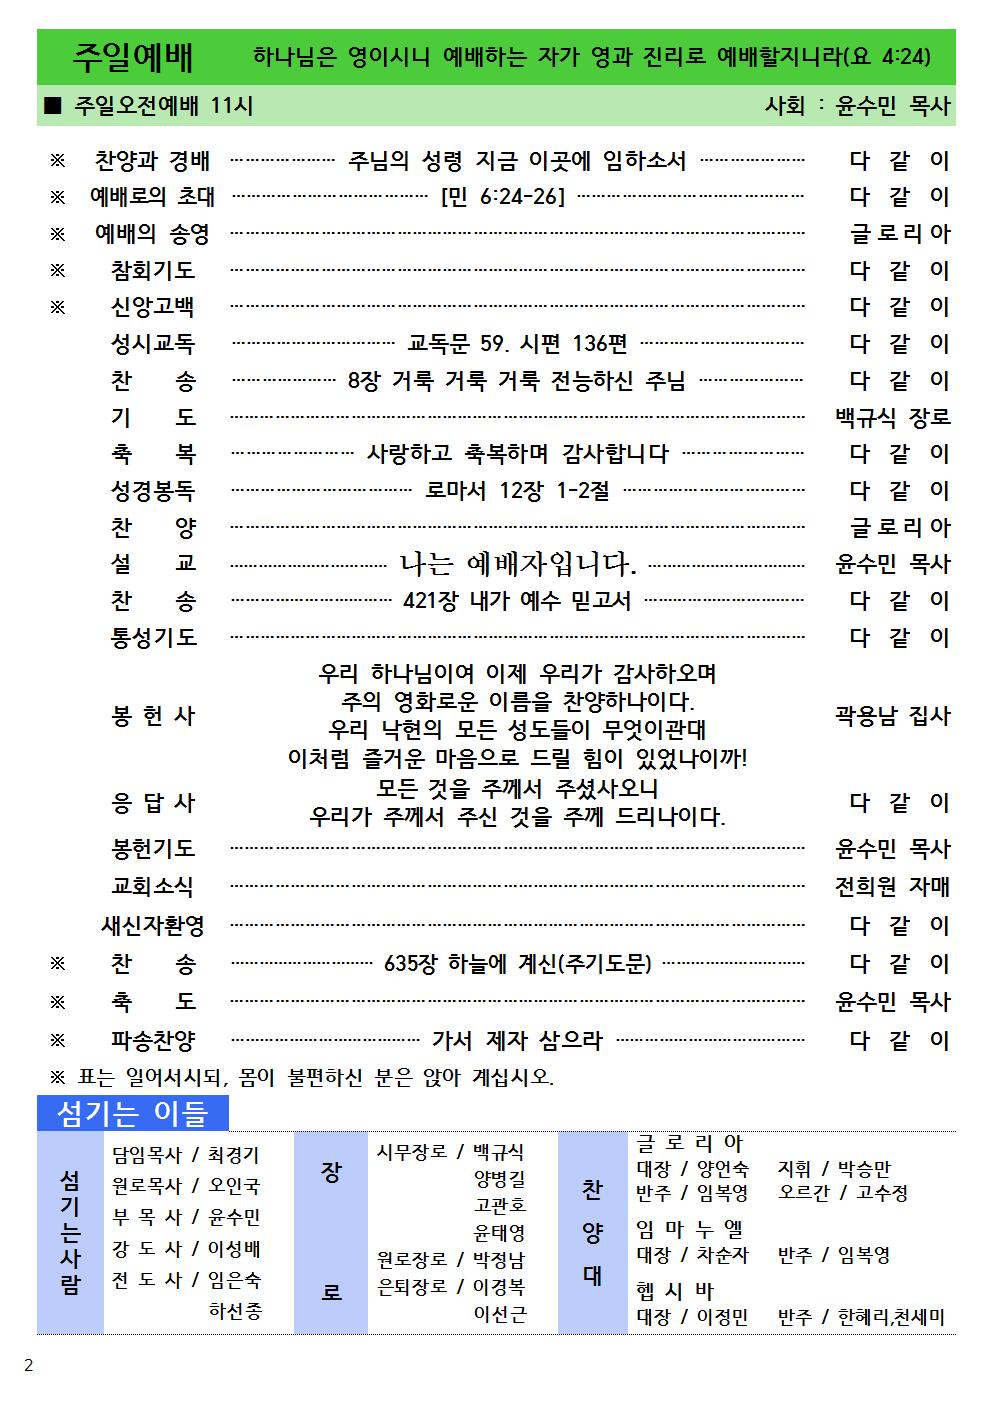 주일예배 하나님은 영이시니 예배하는 자가 영과 진리로 예배할지니라(요 4:24)
■ 주일오전예배 11시 사회 : 윤수민 목사
※ 찬양과 경배 ····················· 주님의 성령 지금 이곳에 임하소서 ····················· 다 같 이
※ 예배로의 초대 ····················· [민 6:24-26] ····················· 다 같 이
※ 예배의 송영 ····················· 글로리아
※ 참회기도 ····················· 다 같 이
※ 신앙고백 ····················· 다 같 이
성시교독 ····················· 교독문 59. 시편 136편 ····················· 다 같 이
찬 송 ····················· 8장 거룩 거룩 거룩 전능하신 주님 ····················· 다 같 이
기 도 ····················· 백규식 장로
축 복 ····················· 사랑하고 축복하며 감사합니다 ····················· 다 같 이
성경봉독 ····················· 로마서 12장 1-2절 ····················· 다 같 이
찬 양 ····················· 글로리아
설 교 ····················· 나는 예배자입니다. ····················· 윤수민 목사
찬 송 ····················· 421장 내가 예수 믿고서 ····················· 다 같 이
통성기도 ····················· 다 같 이
우리 하나님이여 이제 우리가 감사하오며
주의 영화로운 이름을 찬양하나이다.
봉 헌 사 우리 낙현의 모든 성도들이 무엇이관대 곽용남 집사
이처럼 즐거운 마음으로 드릴 힘이 있었나이까!
모든 것을 주께서 주셨사오니
응 답 사 우리가 주께서 주신 것을 주께 드리나이다. 다 같 이
봉헌기도 ····················· 윤수민 목사
교회소식 ····················· 전희원 자매
새신자환영 ····················· 다 같 이
※ 찬 송 ····················· 635장 하늘에 계신(주기도문) ····················· 다 같 이
※ 축 도 ····················· 윤수민 목사
※ 파송찬양 ····················· 가서 제자 삼으라 ····················· 다 같 이
※ 표는 일어서시되, 몸이 불편하신 분은 앉아 계십시오.
섬기는 이들
섬기는사람
담임목사 / 최경기
원로목사 / 오인국
부 목 사 / 윤수민
강 도 사 / 이성배
전 도 사 / 임은숙
하선종
장 로
시무장로 / 백규식
양병길
고관호
윤태영
원로장로 / 박정남
은퇴장로 / 이경복
이선근
찬 양 대
글 로 리 아
대장 / 양언숙 지휘 / 박승만
반주 / 임복영 오르간 / 고수정
임 마 누 엘
대장 / 차순자 반주 / 임복영
헵 시 바
대장 / 이정민 반주 / 한혜리,천세미
2